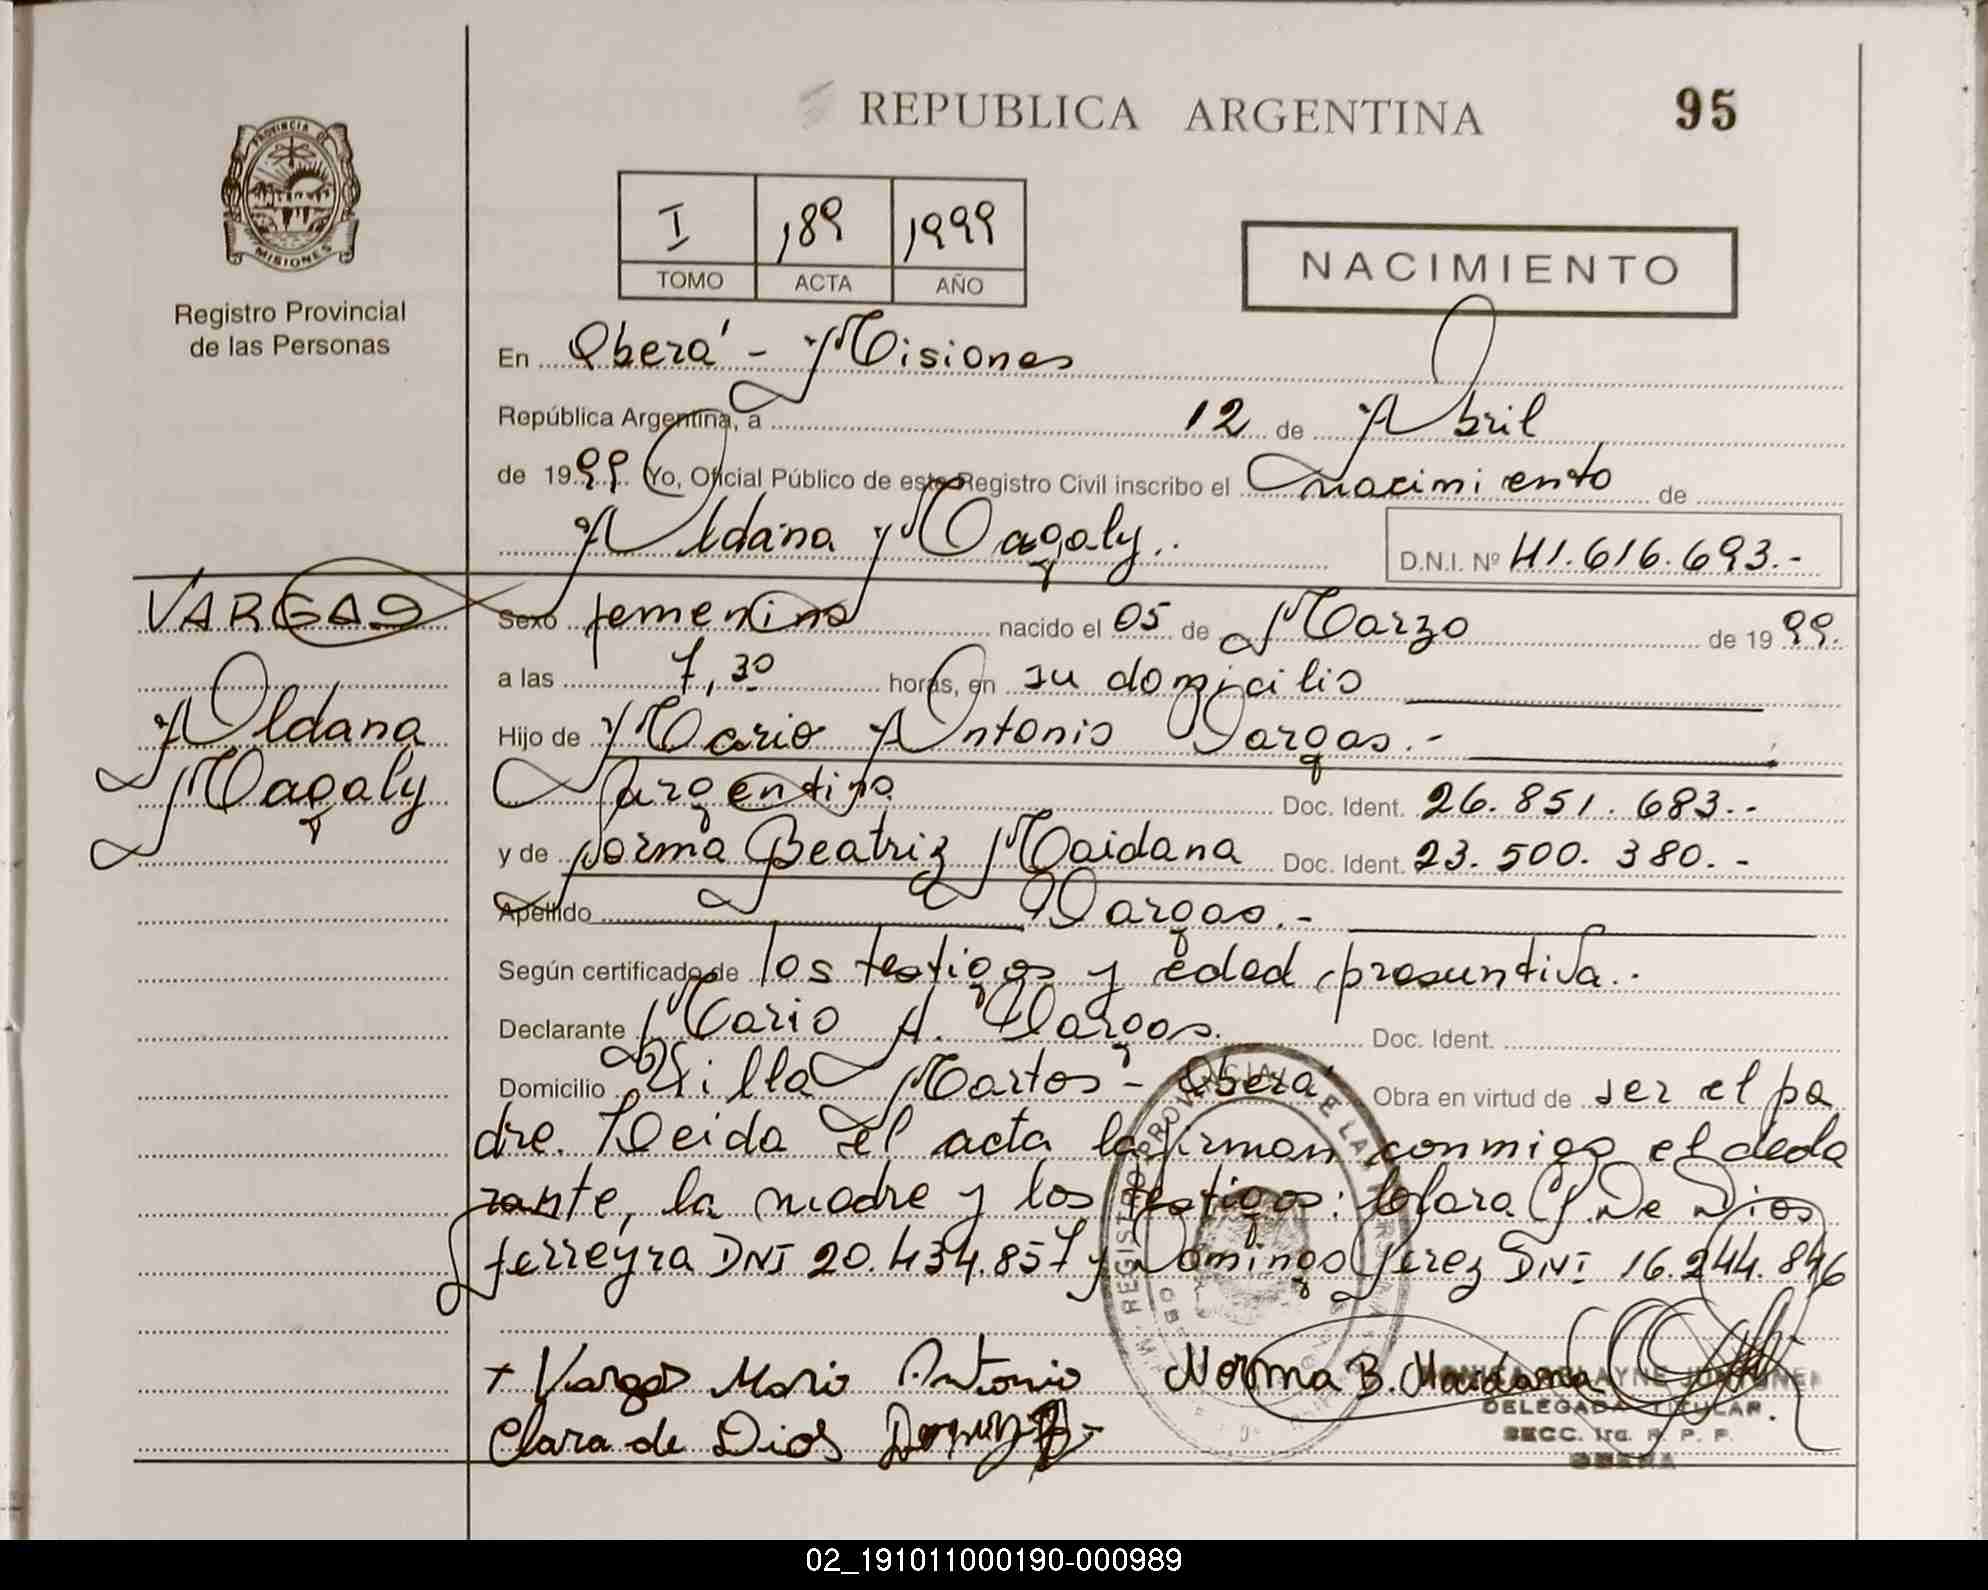 REPUBLICA ARGENTINA
95
PROVINCIA DE
MISIONES
Registro Provincial
de las Personas
I 189 1999
TOMO ACTA AÑO
NACIMIENTO
En Oberá - Misiones
República Argentina, a 12 de Abril
de 1999 Yo, Oficial Público de este Registro Civil inscribo el nacimiento de
Aldana Magaly..
D.N.I. Nº 41.616.693.-
VARGAS
Aldana
Magaly
Sexo femenino nacido el 05 de Marzo de 1999.
a las 7,30 horas, en su domicilio
Hijo de Mario Antonio Vargas.-
Argentino Doc. Ident. 26.851.683.-
y de Norma Beatriz Maidana Doc. Ident. 23.500.380.-
Apellido Vargas.-
Según certificado de los testigos y edad presuntiva.-
Declarante Mario A. Vargas. Doc. Ident.
Domicilio Villa Martos - Oberá Obra en virtud de ser el pa
dre. Leida el acta la firman conmigo el decla
rante, la madre y los testigos: Clara G. De Dios
ferreyra DNI 20.434.857 y Domingo Perez DNI 16.244.846
+ Vargas Mario Antonio Norma B. Maidana
Clara de Dios
DELEGADA TITULAR
SECC. 1ra. R. P. P.
OBERA
02_191011000190-000989